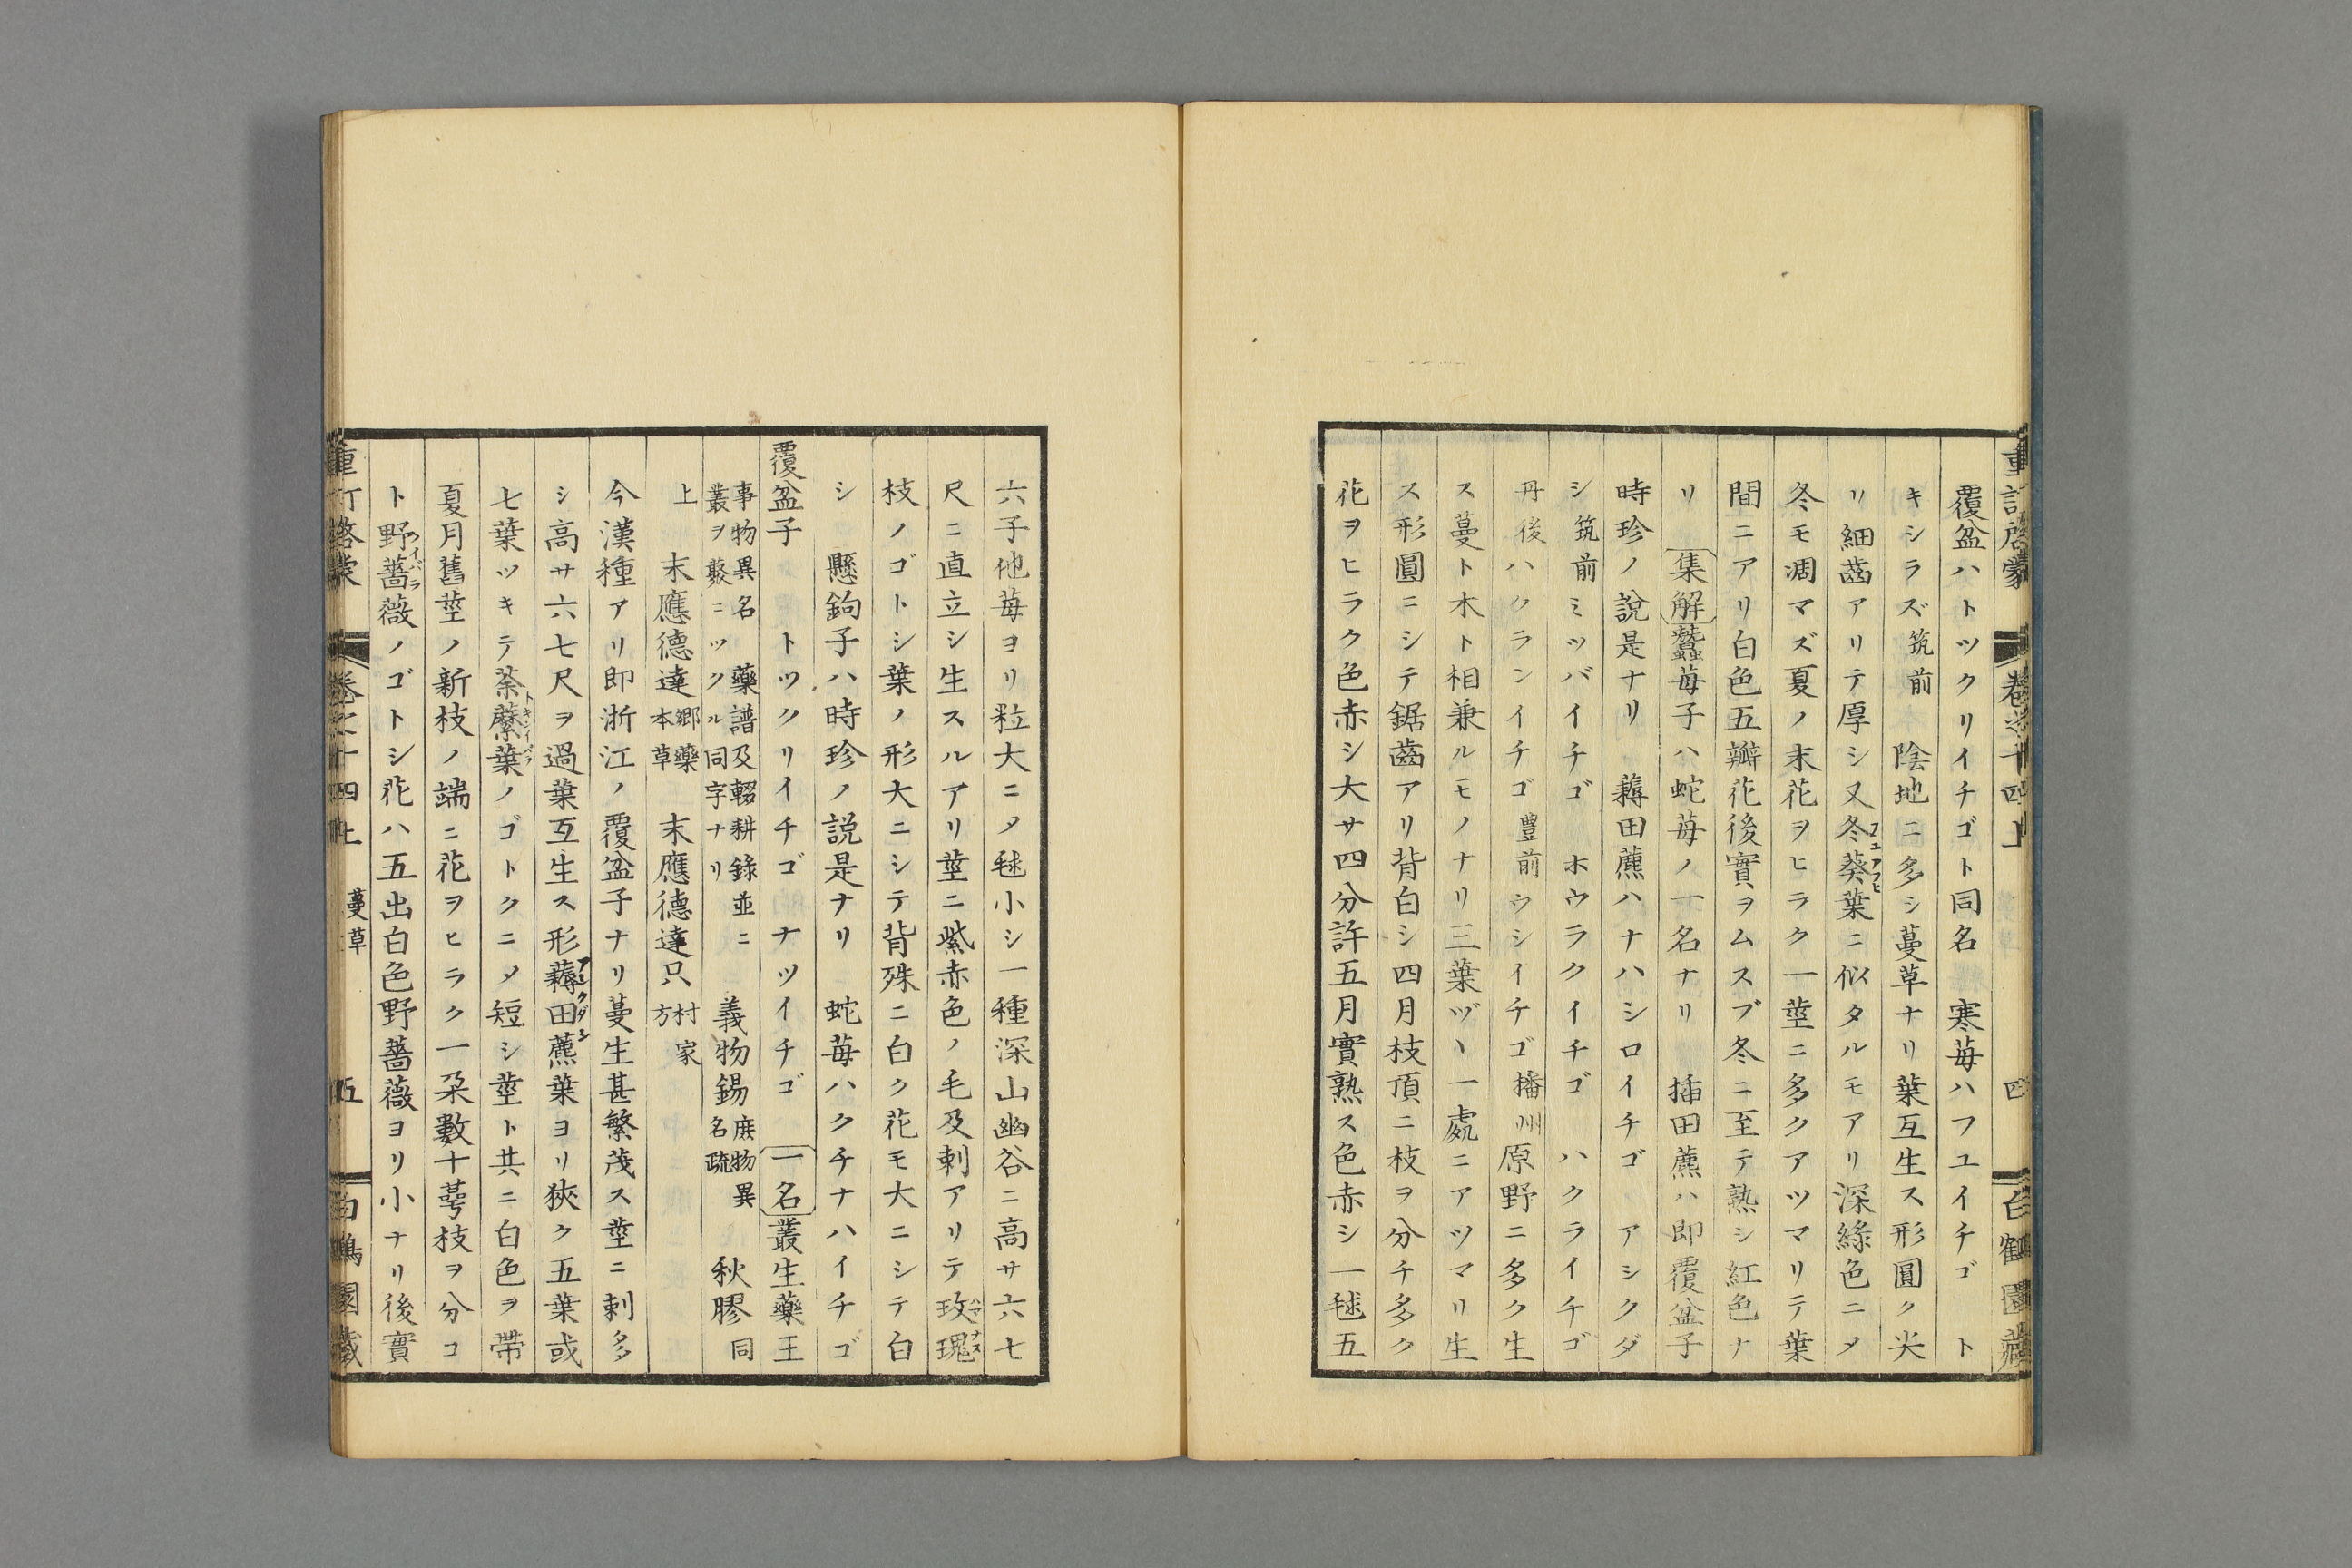 重訂啓蒙 卷之十四上 四 白鶴園藏
覆盆ハトツクリイチゴト同名 寒莓ハフユイチゴ ト
キシラズ筑前 陰地ニ多シ蔓草ナリ葉互生ス形圓ク尖
リ細齒アリテ厚シ又冬葵フユアフヒ葉ニ似タルモアリ深緑色ニメ
冬モ凋マズ夏ノ末花ヲヒラク一莖ニ多クアツマリテ葉
間ニアリ白色五瓣花後實ヲムスブ冬ニ至テ熟シ紅色ナ
リ 集解蠶莓子ハ蛇莓ノ一名ナリ 插田藨ハ即覆盆子
時珍ノ說是ナリ 薅田藨ハナハシロイチゴ アシクダ
シ筑前 ミツバイチゴ ホウラクイチゴ ハクライチゴ
丹後 ハクランイチゴ豊前 ウシイチゴ播州 原野ニ多ク生
ス蔓ト木ト相兼ルモノナリ三葉ヅヽ一處ニアツマリ生
ス形圓ニシテ鋸齒アリ背白シ四月枝頂ニ枝ヲ分チ多ク
花ヲヒラク色赤シ大サ四分許五月實熟ス色赤シ一毬五
六子他莓ヨリ粒大ニメ毬小シ一種深山幽谷ニ高サ六七
尺ニ直立シ生スルアリ莖ニ紫赤色ノ毛及刺アリテ玫瑰ハマナス
枝ノゴトシ葉ノ形大ニシテ背殊ニ白ク花モ大ニシテ白
シ 懸鉤子ハ時珍ノ説是ナリ 蛇莓ハクチナハイチゴ
覆盆子 トツクリイチゴ ナツイチゴ 一名叢生藥王
事物異名 藥譜及輟耕錄並ニ叢ヲ藂ニツクル同字ナリ 義物錫庶物異名疏 秋膠同
上 末應德達鄉藥本草 末應德達只村家方
今漢種アリ即浙江ノ覆盆子ナリ蔓生甚繁茂ス莖ニ刺多
シ高サ六七尺ヲ過葉互生ス形薅田藨アシクダシ葉ヨリ狹ク五葉或
七葉ツキテ荼蘼トキンイバラ葉ノゴトクニメ短シ莖ト共ニ白色ヲ帶
夏月舊莖ノ新枝ノ端ニ花ヲヒラク一朶數十萼枝ヲ分コ
ト野薔薇ノイバラノゴトシ花ハ五出白色野薔薇ヨリ小ナリ後實
重訂啓蒙 卷之十四上 蔓草 五 白鶴園藏